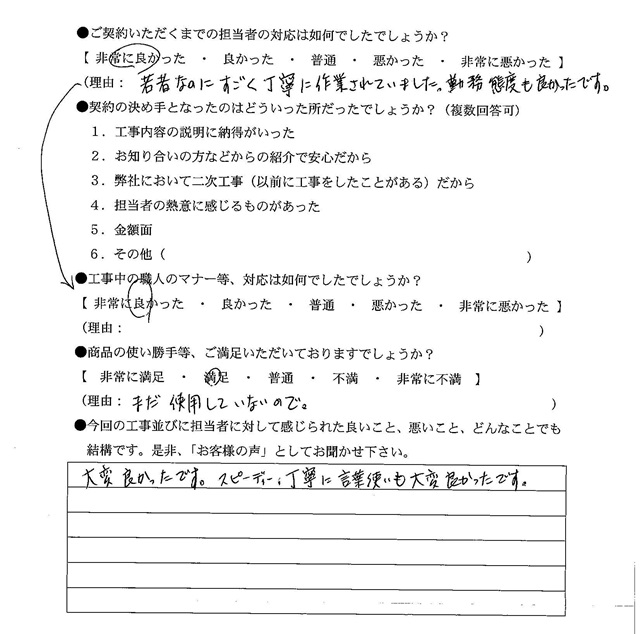 ●ご契約いただくまでの担当者の対応は如何でしたでしょうか？
【 非常に良かった ・ 良かった ・ 普通 ・ 悪かった ・ 非常に悪かった 】
（理由： 若者なのにすごく丁寧に作業されていました。勤務態度も良かったです。
●契約の決め手となったのはどういった所だったでしょうか？（複数回答可）
１．工事内容の説明に納得がいった
２．お知り合いの方などからの紹介で安心だから
３．弊社において二次工事（以前に工事をしたことがある）だから
４．担当者の熱意に感じるものがあった
５．金額面
６．その他（ ）
●工事中の職人のマナー等、対応は如何でしたでしょうか？
【 非常に良かった ・ 良かった ・ 普通 ・ 悪かった ・ 非常に悪かった 】
（理由： ）
●商品の使い勝手等、ご満足いただいておりますでしょうか？
【 非常に満足 ・ 満足 ・ 普通 ・ 不満 ・ 非常に不満 】
（理由： まだ使用していないので。 ）
●今回の工事並びに担当者に対して感じられた良いこと、悪いこと、どんなことでも
結構です。是非、「お客様の声」としてお聞かせ下さい。
大変良かったです。スピーディー、丁寧に言葉使いも大変良かったです。